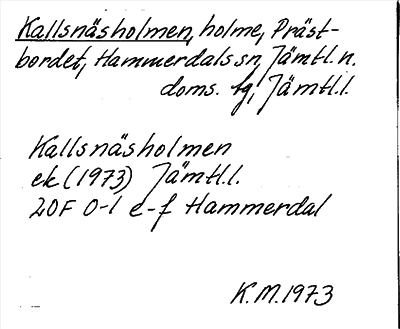 Kallsnäsholmen, holme, Präst-
bordet, Hammerdals sn, Jämtl. n.
doms. tg, Jämtl. l.
Kallsnäsholmen
ek (1973) Jämtl. l.
20F 0-1 e-f Hammerdal
K.M. 1973